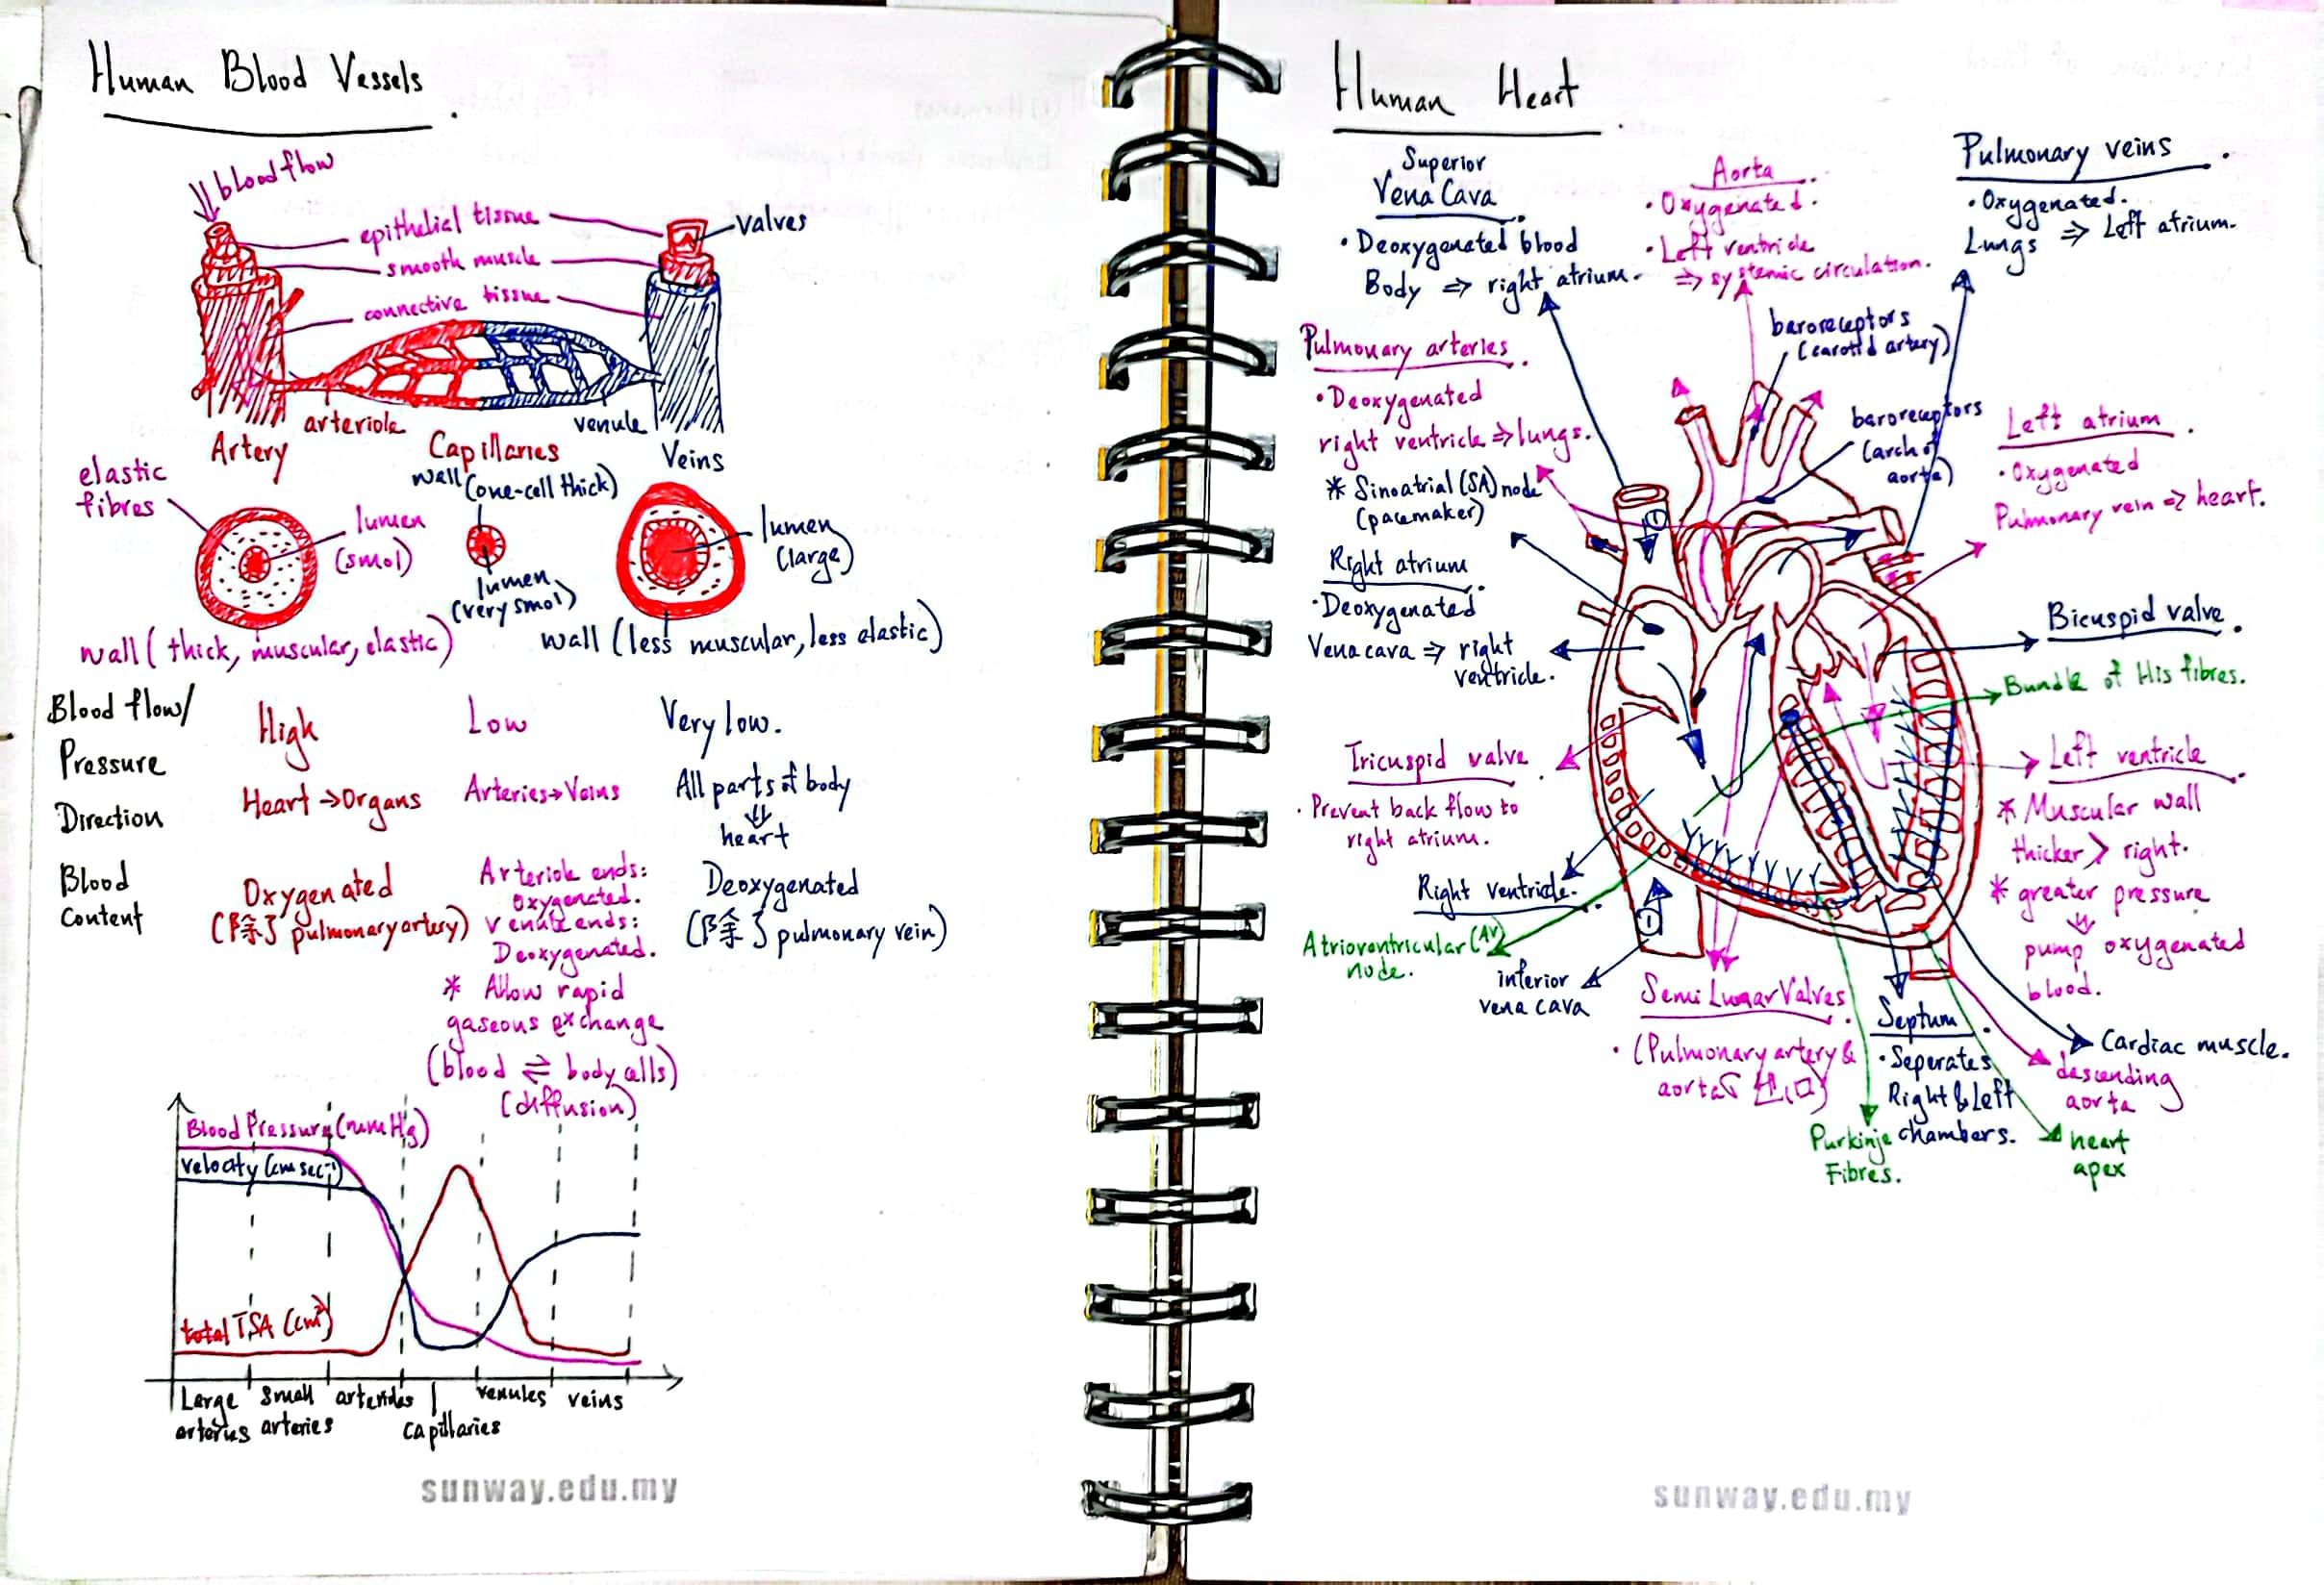 Human Blood Vessels.
blood flow
epithelial tissue
smooth muscle
connective tissue
valves
arteriole
venule
Artery
Capillaries
Veins
elastic
fibres
lumen
(smol)
wall (one-cell thick)
lumen
(very smol)
lumen
(large)
wall (thick, muscular, elastic)
wall (less muscular, less elastic)
Blood flow/
Pressure
High
Low
Very low.
Direction
Heart → Organs
Arteries → Veins
All parts of body
⇓
heart
Blood
content
Oxygenated
(除了 pulmonary artery)
Arteriole ends:
Oxygenated.
Venule ends:
Deoxygenated.
* Allow rapid
gaseous exchange
(blood ⇌ body cells)
(diffusion)
Deoxygenated
(除了 pulmonary vein)
Blood Pressure (mmHg)
velocity (cm sec⁻¹)
total TSA (cm²)
Large
arteries
small
arteries
arterioles
capillaries
venules
veins
sunway.edu.my
Human Heart.
Superior
Vena Cava.
• Deoxygenated blood
Body ⇒ right atrium.
Aorta.
• Oxygenated.
• Left ventricle
⇒ systemic circulation.
Pulmonary veins.
• Oxygenated.
Lungs ⇒ Left atrium.
baroreceptors
(carotid artery)
baroreceptors
(arch of
aorta)
Pulmonary arteries.
• Deoxygenated
right ventricle ⇒ lungs.
* Sinoatrial (SA) node
(pacemaker)
Right atrium.
• Deoxygenated
Vena cava ⇒ right
ventricle.
Left atrium.
• Oxygenated
Pulmonary vein ⇒ heart.
Bicuspid valve.
Bundle of His fibres.
Tricuspid valve.
• Prevent back flow to
right atrium.
Left ventricle.
* Muscular wall
thicker > right.
* greater pressure
⇓
pump oxygenated
blood.
Right ventricle.
Atrioventricular (AV)
node.
inferior
vena cava
①
①
Semi Lunar Valves.
• (Pulmonary artery &
aorta
出口)
Septum.
• Seperates
Right & Left
chambers.
Cardiac muscle.
descending
aorta
Purkinje
Fibres.
heart
apex
sunway.edu.my